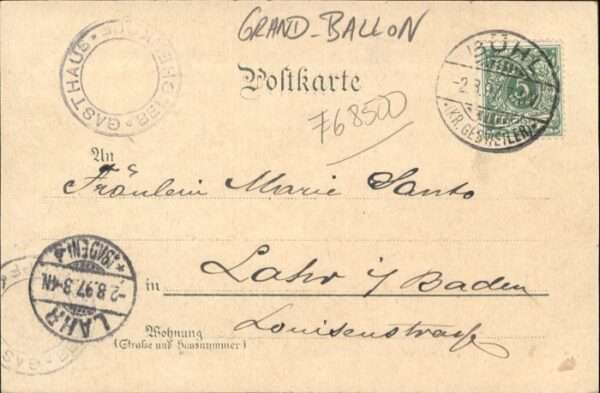 GRAND-BALLON
GASTHAUS
Postkarte
BÜHL
-2.8.97
(KR. GEBWEILER)
5
F68500
An
Fräulein Marie Santo
in Lahr i/ Baden
Louisenstrasse
Wohnung
(Straße und Hausnummer)
(BADEN)
-2.8.97.3-4N.
LAHR
GAST